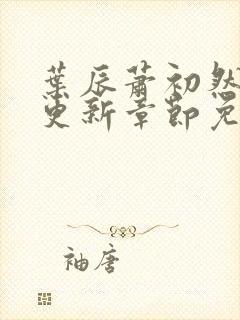 葉辰蕭初然
更新章節免
袖唐